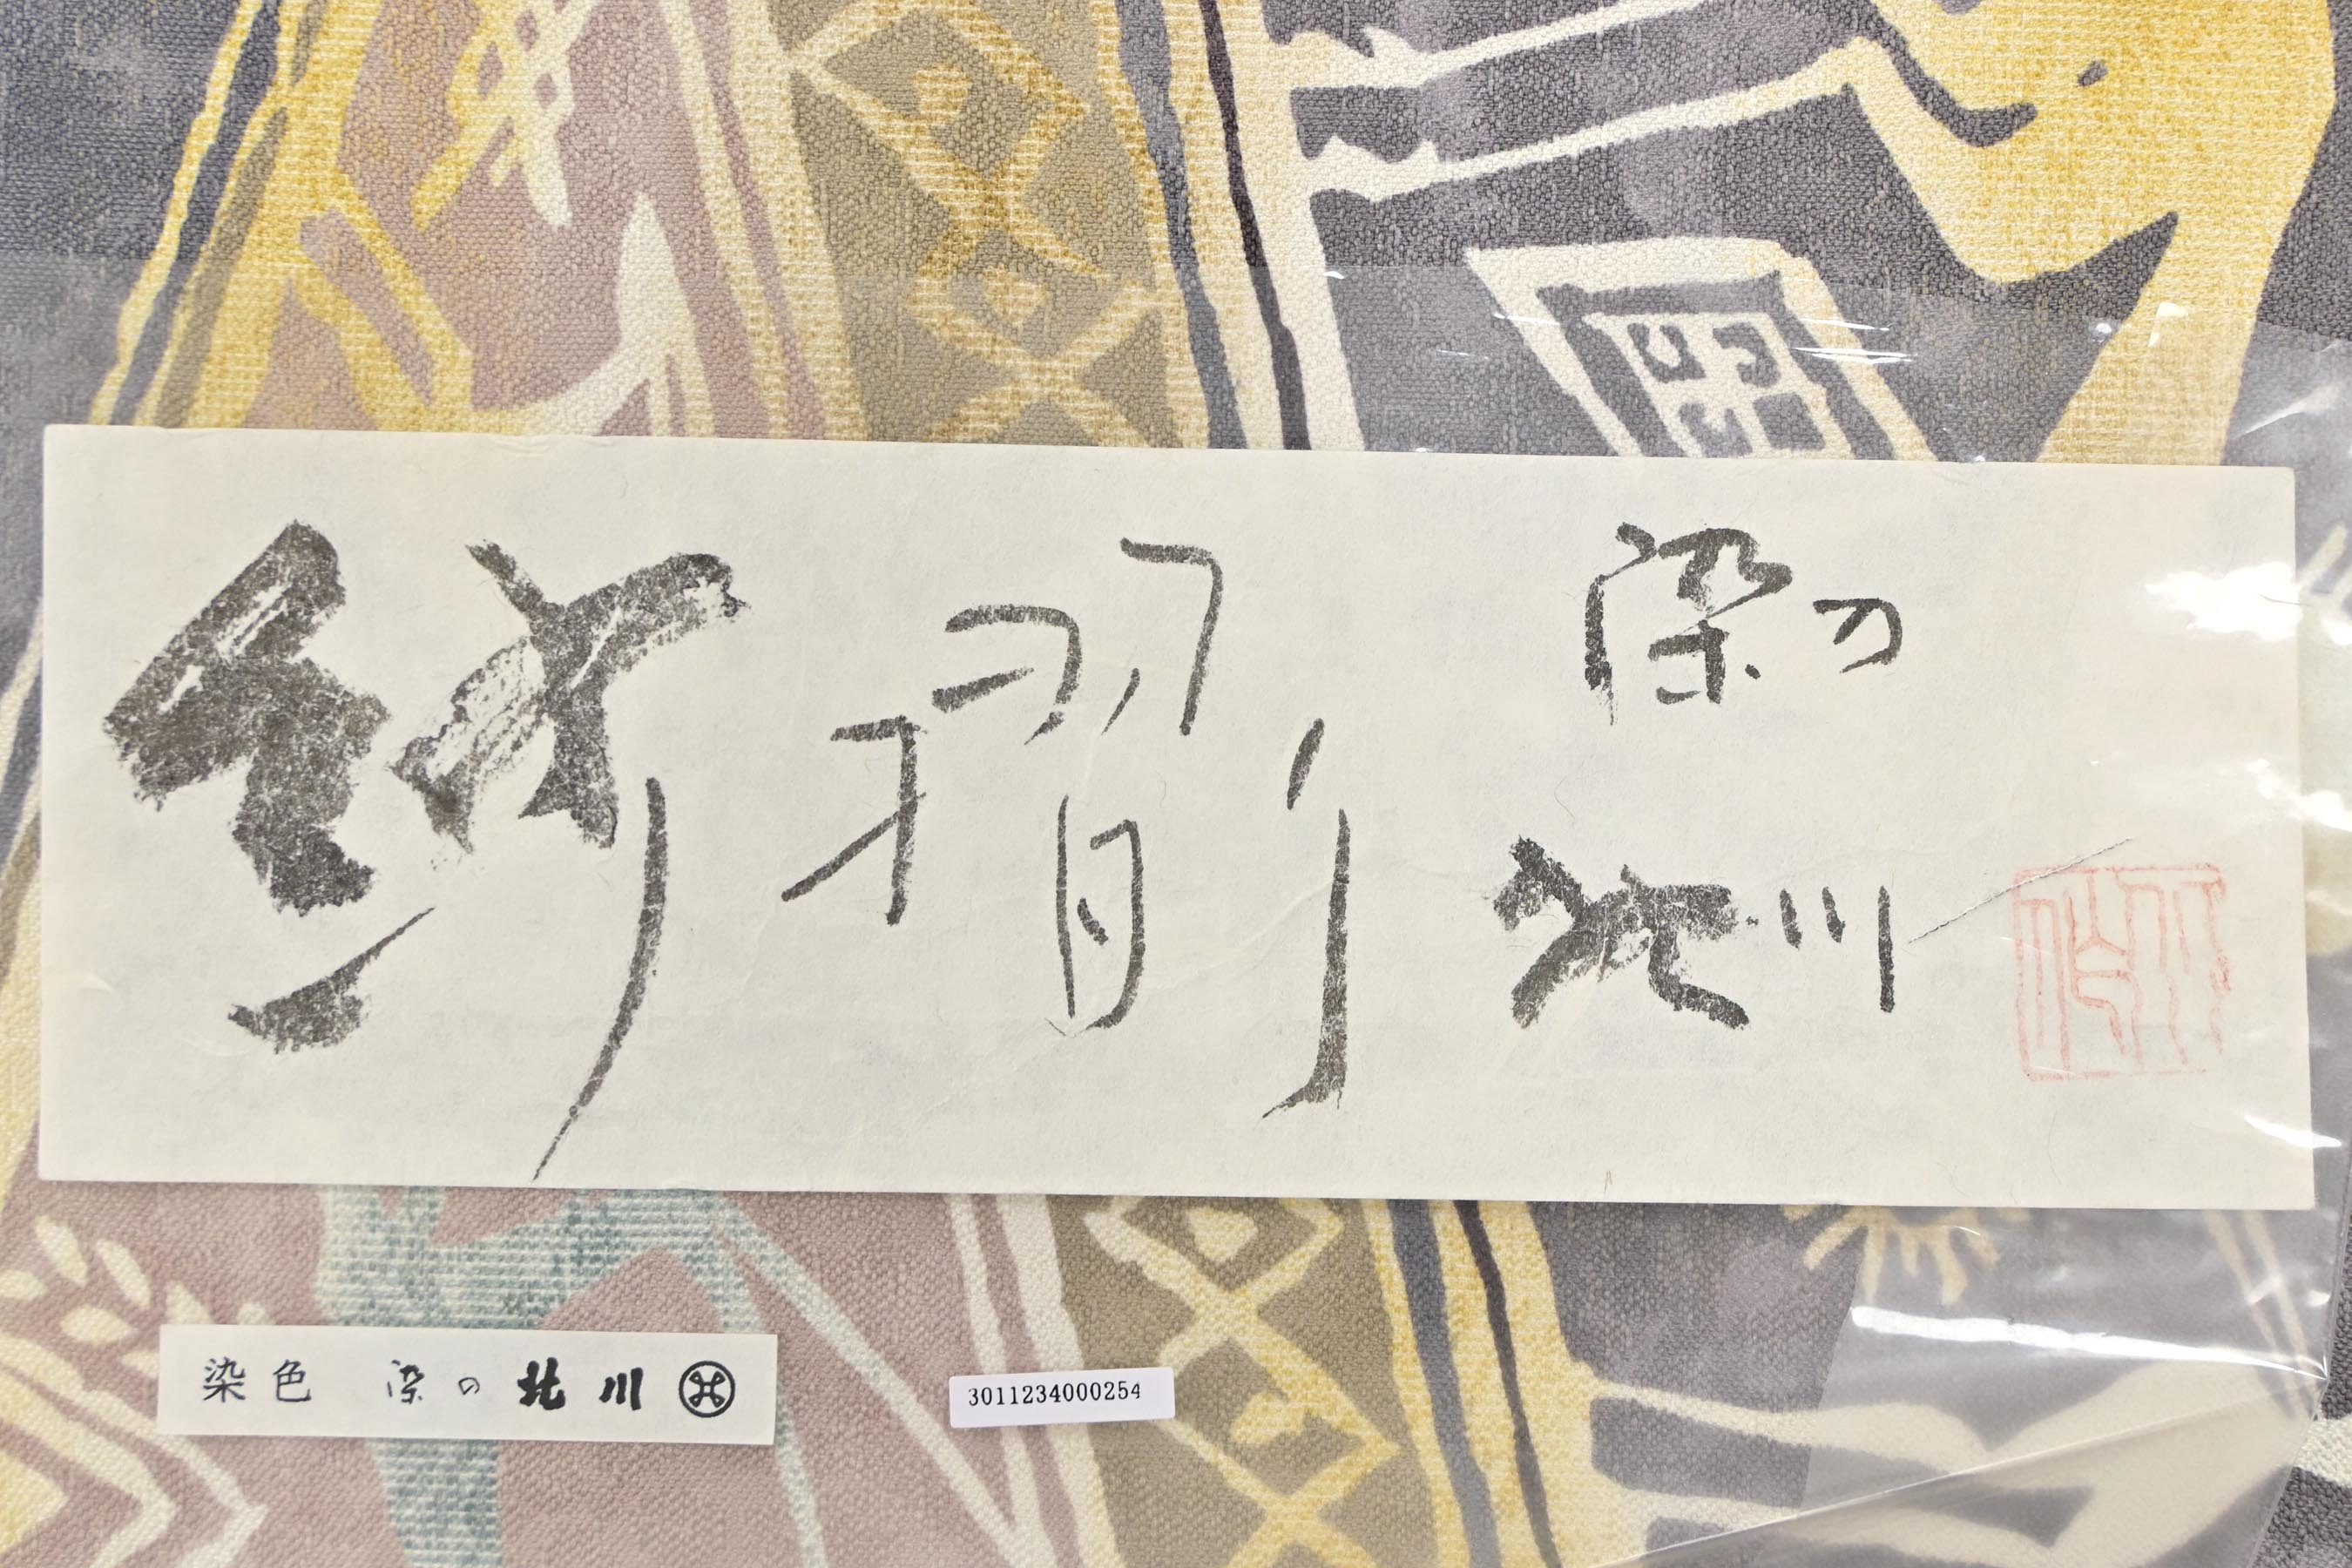 紗摺り
染の
北川
染色 染の北川
3011234000254